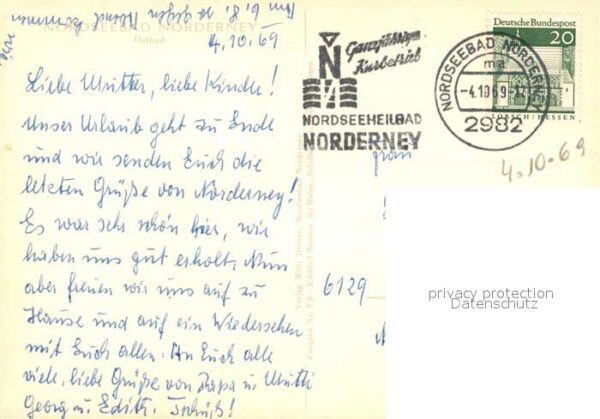 NORDSEEBAD NORDERNEY
Ostbad
4.10.69
Liebe Mutter, liebe Kinder!
Unser Urlaub geht zu Ende
und wir senden Euch die
letzten Grüße von Norderney!
Es war sehr schön hier, wir
haben uns gut erholt. Nun
aber freuen wir uns auf zu
Hause und auf ein Wiedersehen
mit Euch allen. An Euch alle
viele, liebe Grüße von Papa u. Mutti
Georg u. Edith. Tschüß!
Ganzjähriger
Kurbetrieb
N
NORDSEEHEILBAD
NORDERNEY
NORDSEEBAD NORDERNEY
ma
-4.10.69-12
2982
Deutsche Bundespost
20
LORSCH/HESSEN
4.10.69
Frau
6129
privacy protection
Datenschutz